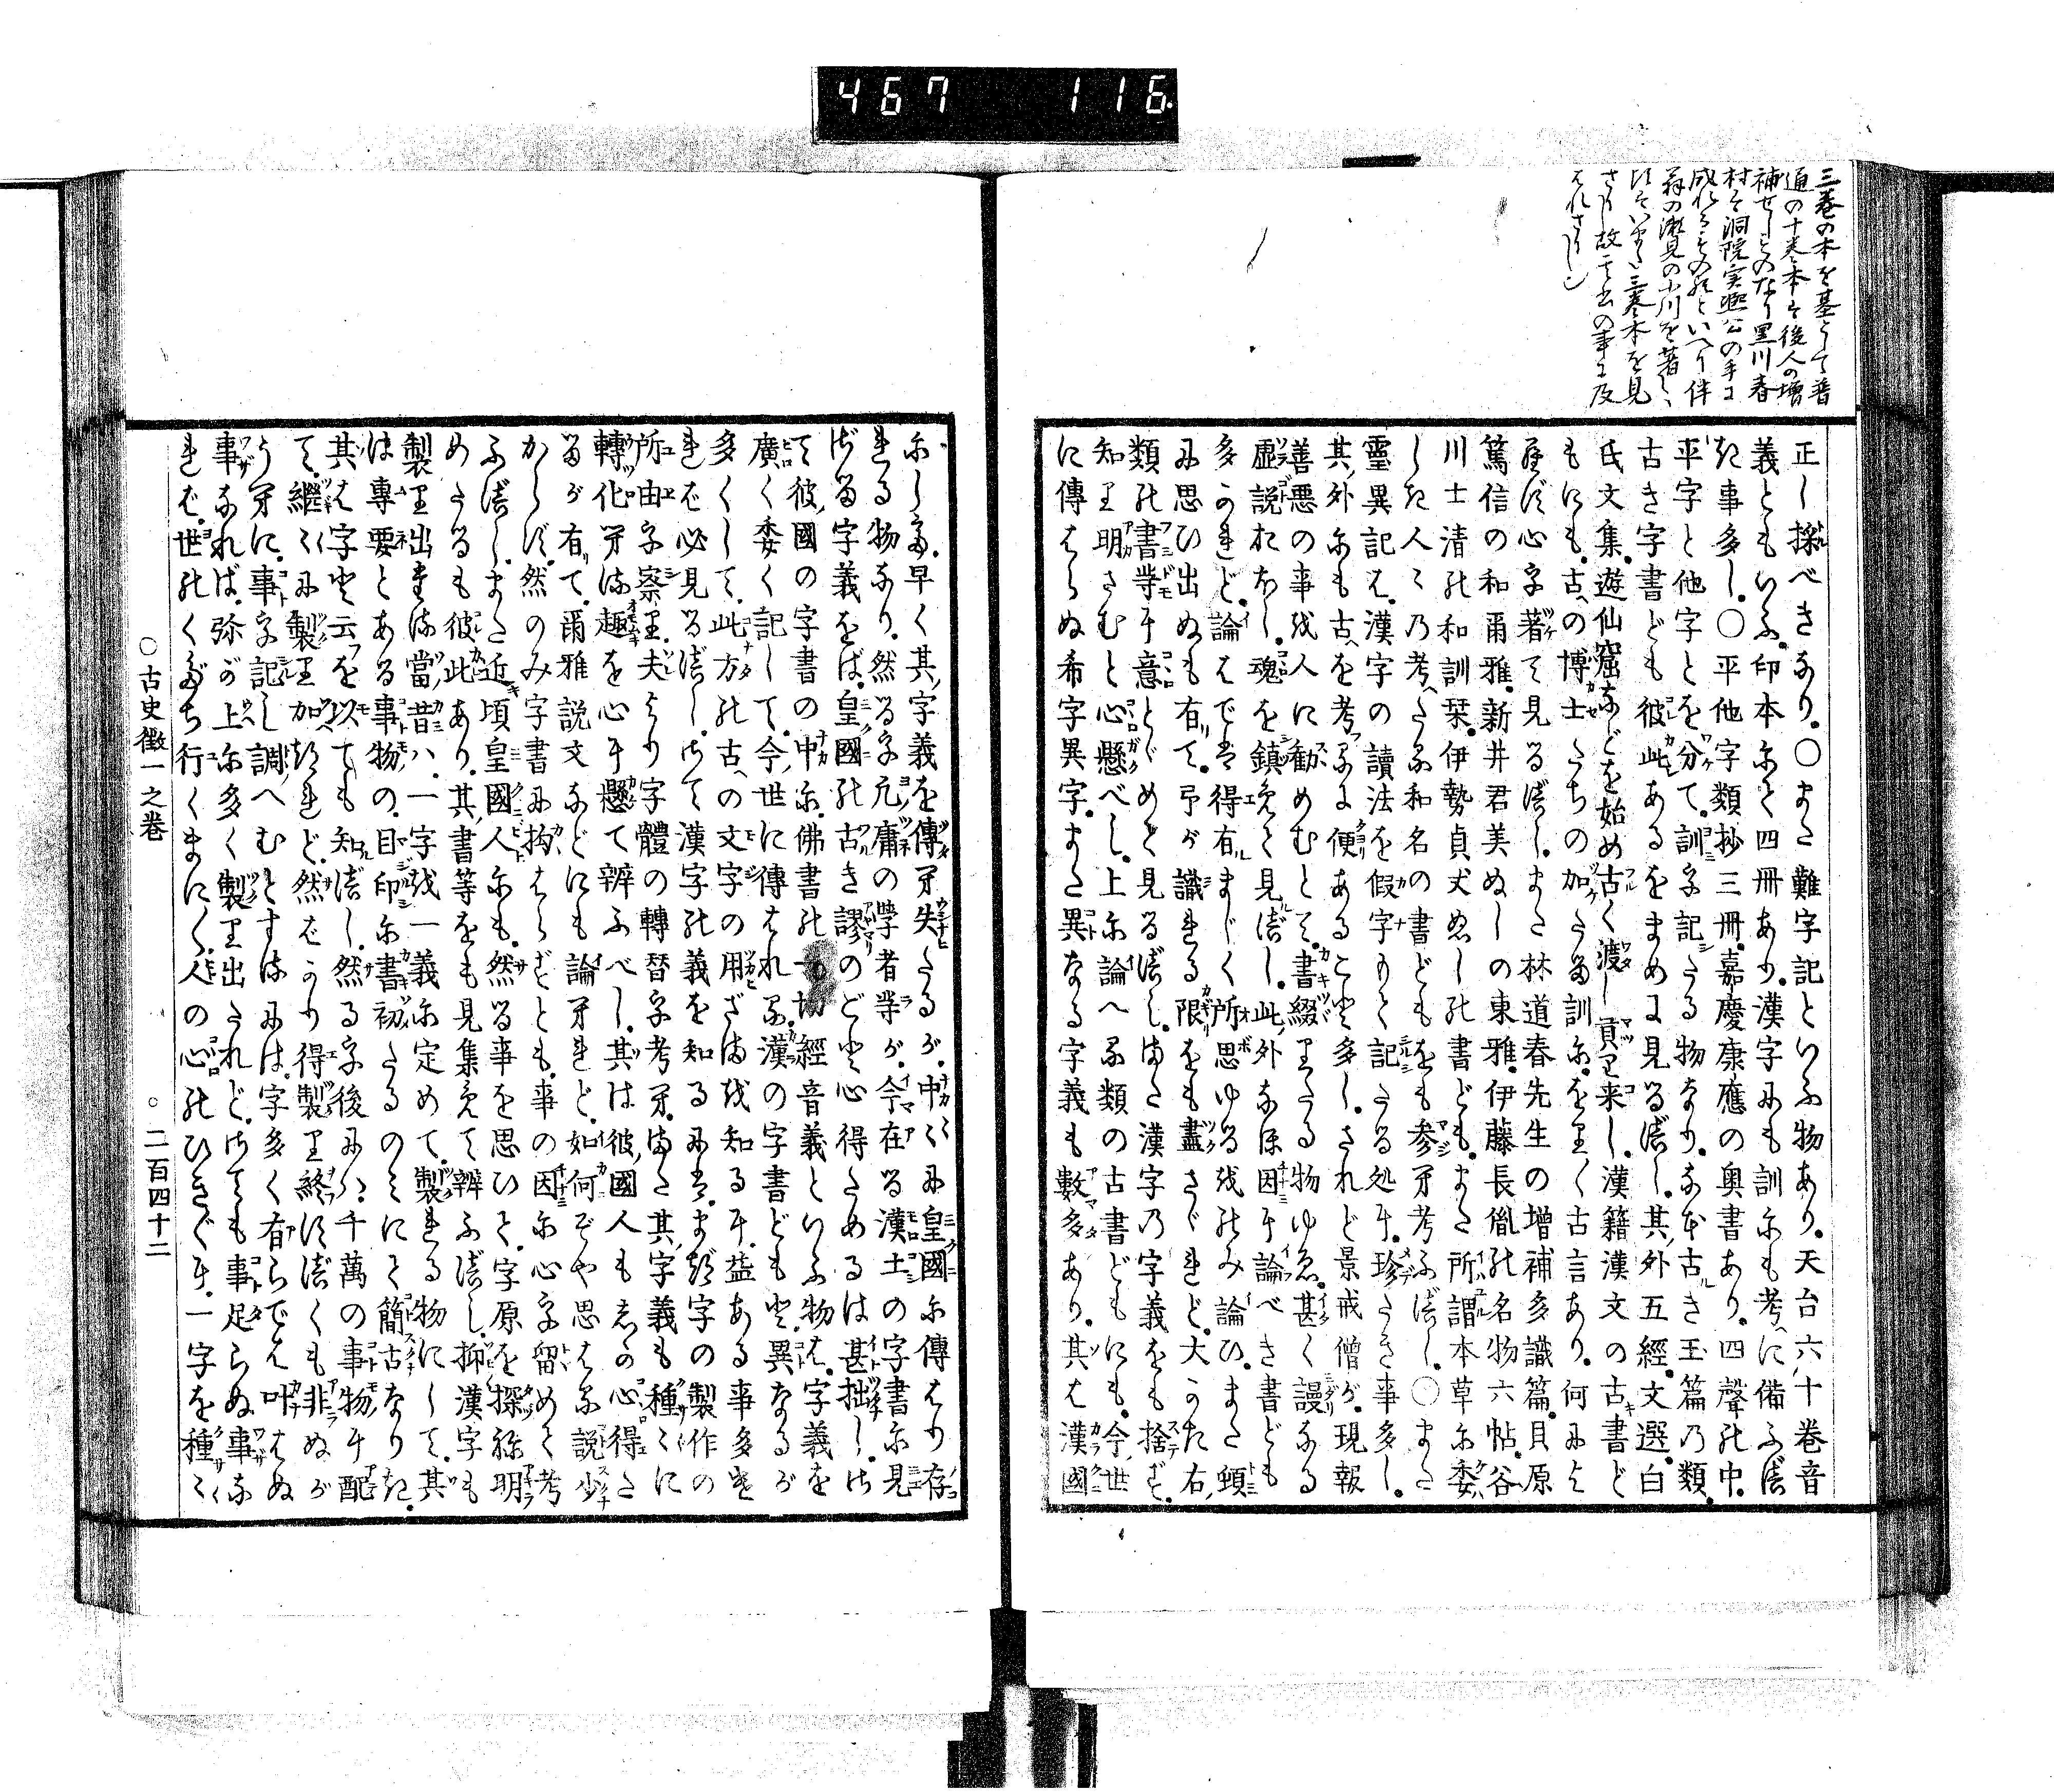 467 116
三巻の本を基として普
通の十巻本は後人の増
補せしものなり黒川春
村は洞院実熙公の手に
成れるものといへり伴
正し採べきなり。○また難字記といふ物あり。天台六十巻音
義ともいふ。印本にて四冊あり。漢字にも訓にも考へに備ふべ
き事多し。○平他字類抄三冊。嘉慶康應の奥書あり。四聲の中。
平字と他字とを分て。訓を記したる物なり。なほ古き玉篇の類。
古き字書ども彼此あるをまめに見るべし。其外五經。文選。白
氏文集。遊仙窟などを始め古く渡し貢り来し。漢籍漢文の古書ど
もにも。古への博士たちの加たる訓に。をりく古言あり。何によ
らず心を著て見るべし。また林道春先生の増補多識篇。貝原
篤信の和爾雅。新井君美ぬしの東雅。伊藤長胤の名物六帖。谷
川士清の和訓栞。伊勢貞丈ぬしの書ども。また所謂本草に委
しき人々の考へたる和名の書どもをも参へ考ふべし。○また
靈異記は。漢字の讀法を假字もて記したる処に。珍しき事多し。
其外にも古へを考ふるに便あること多し。されど景戒僧が。現報
善悪の事を人に勧めむとて。書綴りたる物ゆゑ。甚く謾なる
虚説おほし。魂を鎮めて見べし。此外なほ因に論べき書ども
多かれど。論はでは得有まじく所思ゆるをのみ論ひ。また頓
に思ひ出ぬも有て。予が識れる限をも盡さゞれど。大かた右
類の書等に意をとゞめて見るべし。また漢字の字義をも捨ず。
知り明さむと心懸べし。上に論へる類の古書どもにも。今世
に傳はらぬ希字異字。また異なる字義も數多あり。其は漢國
にしも。早く其字義を傳へ失たるが。中々に皇國に傳はり存
れる物なり。然るを凡庸の學者等が。今在る漢土の字書に見
ざる字義をば。皇國の古き謬のごと心得ためるは甚拙し。さ
て彼國の字書の中に。佛書の一切經音義といふ物は。字義を
廣く委く記して。今世に傳はれる。漢の字書どもと。異なるが
多くして。此方の古への文字の用ざまを知るに。益ある事多け
れば必見るべし。さて漢字の義を知るには。まづ字の製作の
所由を察り。夫より字體の轉替を考へ。また其字義も種々に
轉化へる趣を心に懸て辨ふべし。其は彼國人も其の心得た
るが有て。爾雅説文などにも論へれど。如何ぞや思はるゝ説少
からず。然のみ字書に拘はらずとも。事の因に心を留めて考
ふべし。また近頃皇國人にも。然る事を思ひて。字原を探ね明
めたるも彼此あり。其書等をも見集めて辨ふべし。抑漢字も
製り出たる當昔ハ。一字を一義に定めて。製れる物にして。其
は專要とある事物の。目印に書初たるのみにて簡古なりき。
其は字と云を以ても知べし。然る字後にハ千萬の事物に配
て。繼々に製り加へたれど。然ばかり得製り終ずべくも非ぬが
うへに。事を記し調へむとするには。字多く有らでは叶はぬ
事なれば。弥が上に多く製り出たれど。さても事足らぬ事な
れば。世のくだち行くまにく。人の心のひきぐに。一字を種々
○古史徴一之巻 ○二百四十二